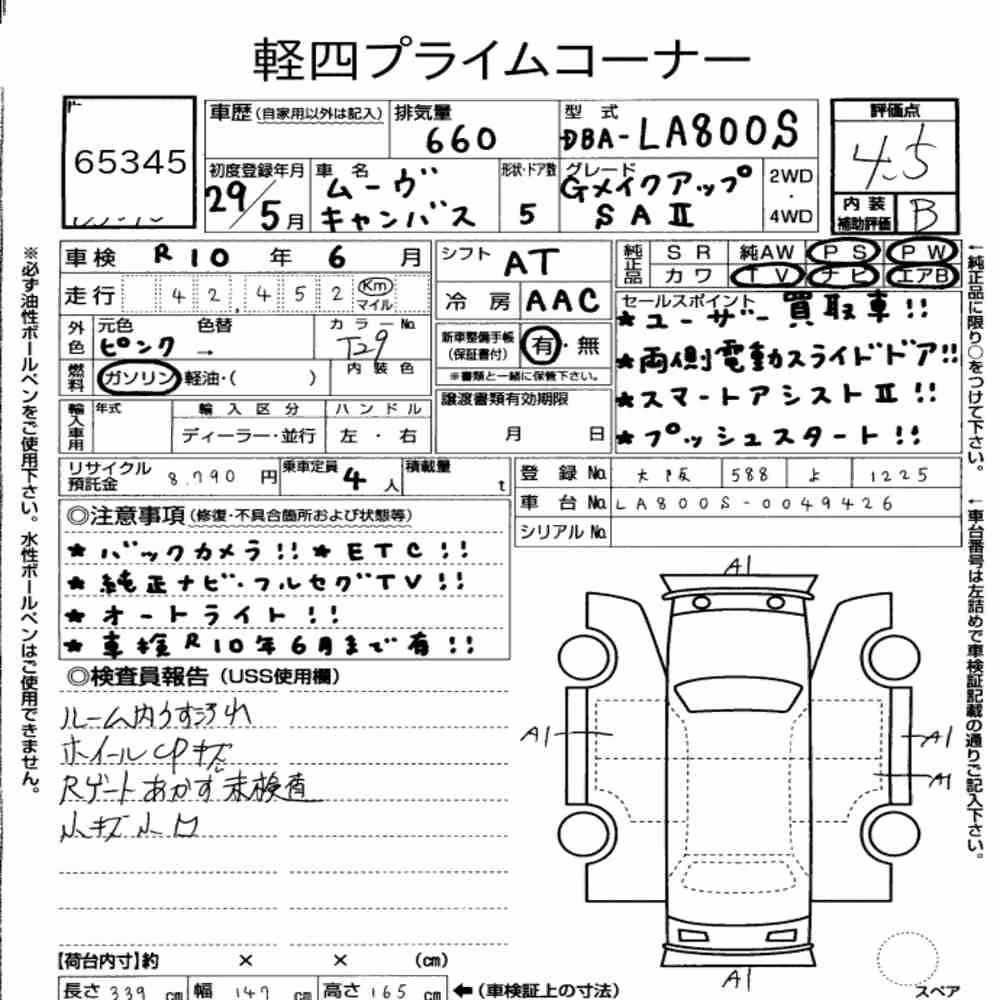 軽四プライムコーナー
65345
車歴(自家用以外は記入)
排気量
660
型式
DBA-LA800S
評価点
4.5
初度登録年月
29/5月
車名
ムーヴ
キャンバス
形状・ドア数
5
グレード
Gメイクアップ
SAⅡ
2WD
・
4WD
内装
補助評価
B
車検 R10年 6月
シフト AT
純正品
SR 純AW PS PW
カワ TV ナビ エアB
走行 42,452 Km マイル
冷房 AAC
セールスポイント
★ユーザー買取車!!
★両側電動スライドドア!!
★スマートアシストⅡ!!
★プッシュスタート!!
外色
元色 色替
ピンク →
カラーNo.
T29
新車整備手帳
(保証書付)
有・無
※書類と一緒に保管下さい。
燃料
ガソリン 軽油・( )
内装色
輸入車用
年式
輸入区分
ディーラー・並行
ハンドル
左・右
譲渡書類有効期限
月 日
リサイクル
預託金
8,790円
乗車定員
4人
積載量
t
登録No. 大阪 588 よ 1225
車台No. LA800S-0049426
シリアルNo.
◎注意事項(修復・不具合箇所および状態等)
★バックカメラ!!★ETC!!
★純正ナビ・フルセグTV!!
★オートライト!!
★車検R10年6月まで有!!
◎検査員報告(USS使用欄)
ルーム内うす汚れ
ホイールCPキズ
Rゲートあかず未検査
小キズ小凹
A1
A1
A1
A1
A1
【荷台内寸】約 × × (cm)
長さ 339 cm 幅 147 cm 高さ 165 cm ←(車検証上の寸法)
スペア
※必ず油性ボールペンをご使用下さい。水性ボールペンはご使用できません。
←純正品に限り○をつけて下さい。
←車台番号は左詰めで車検証記載の通りご記入下さい。